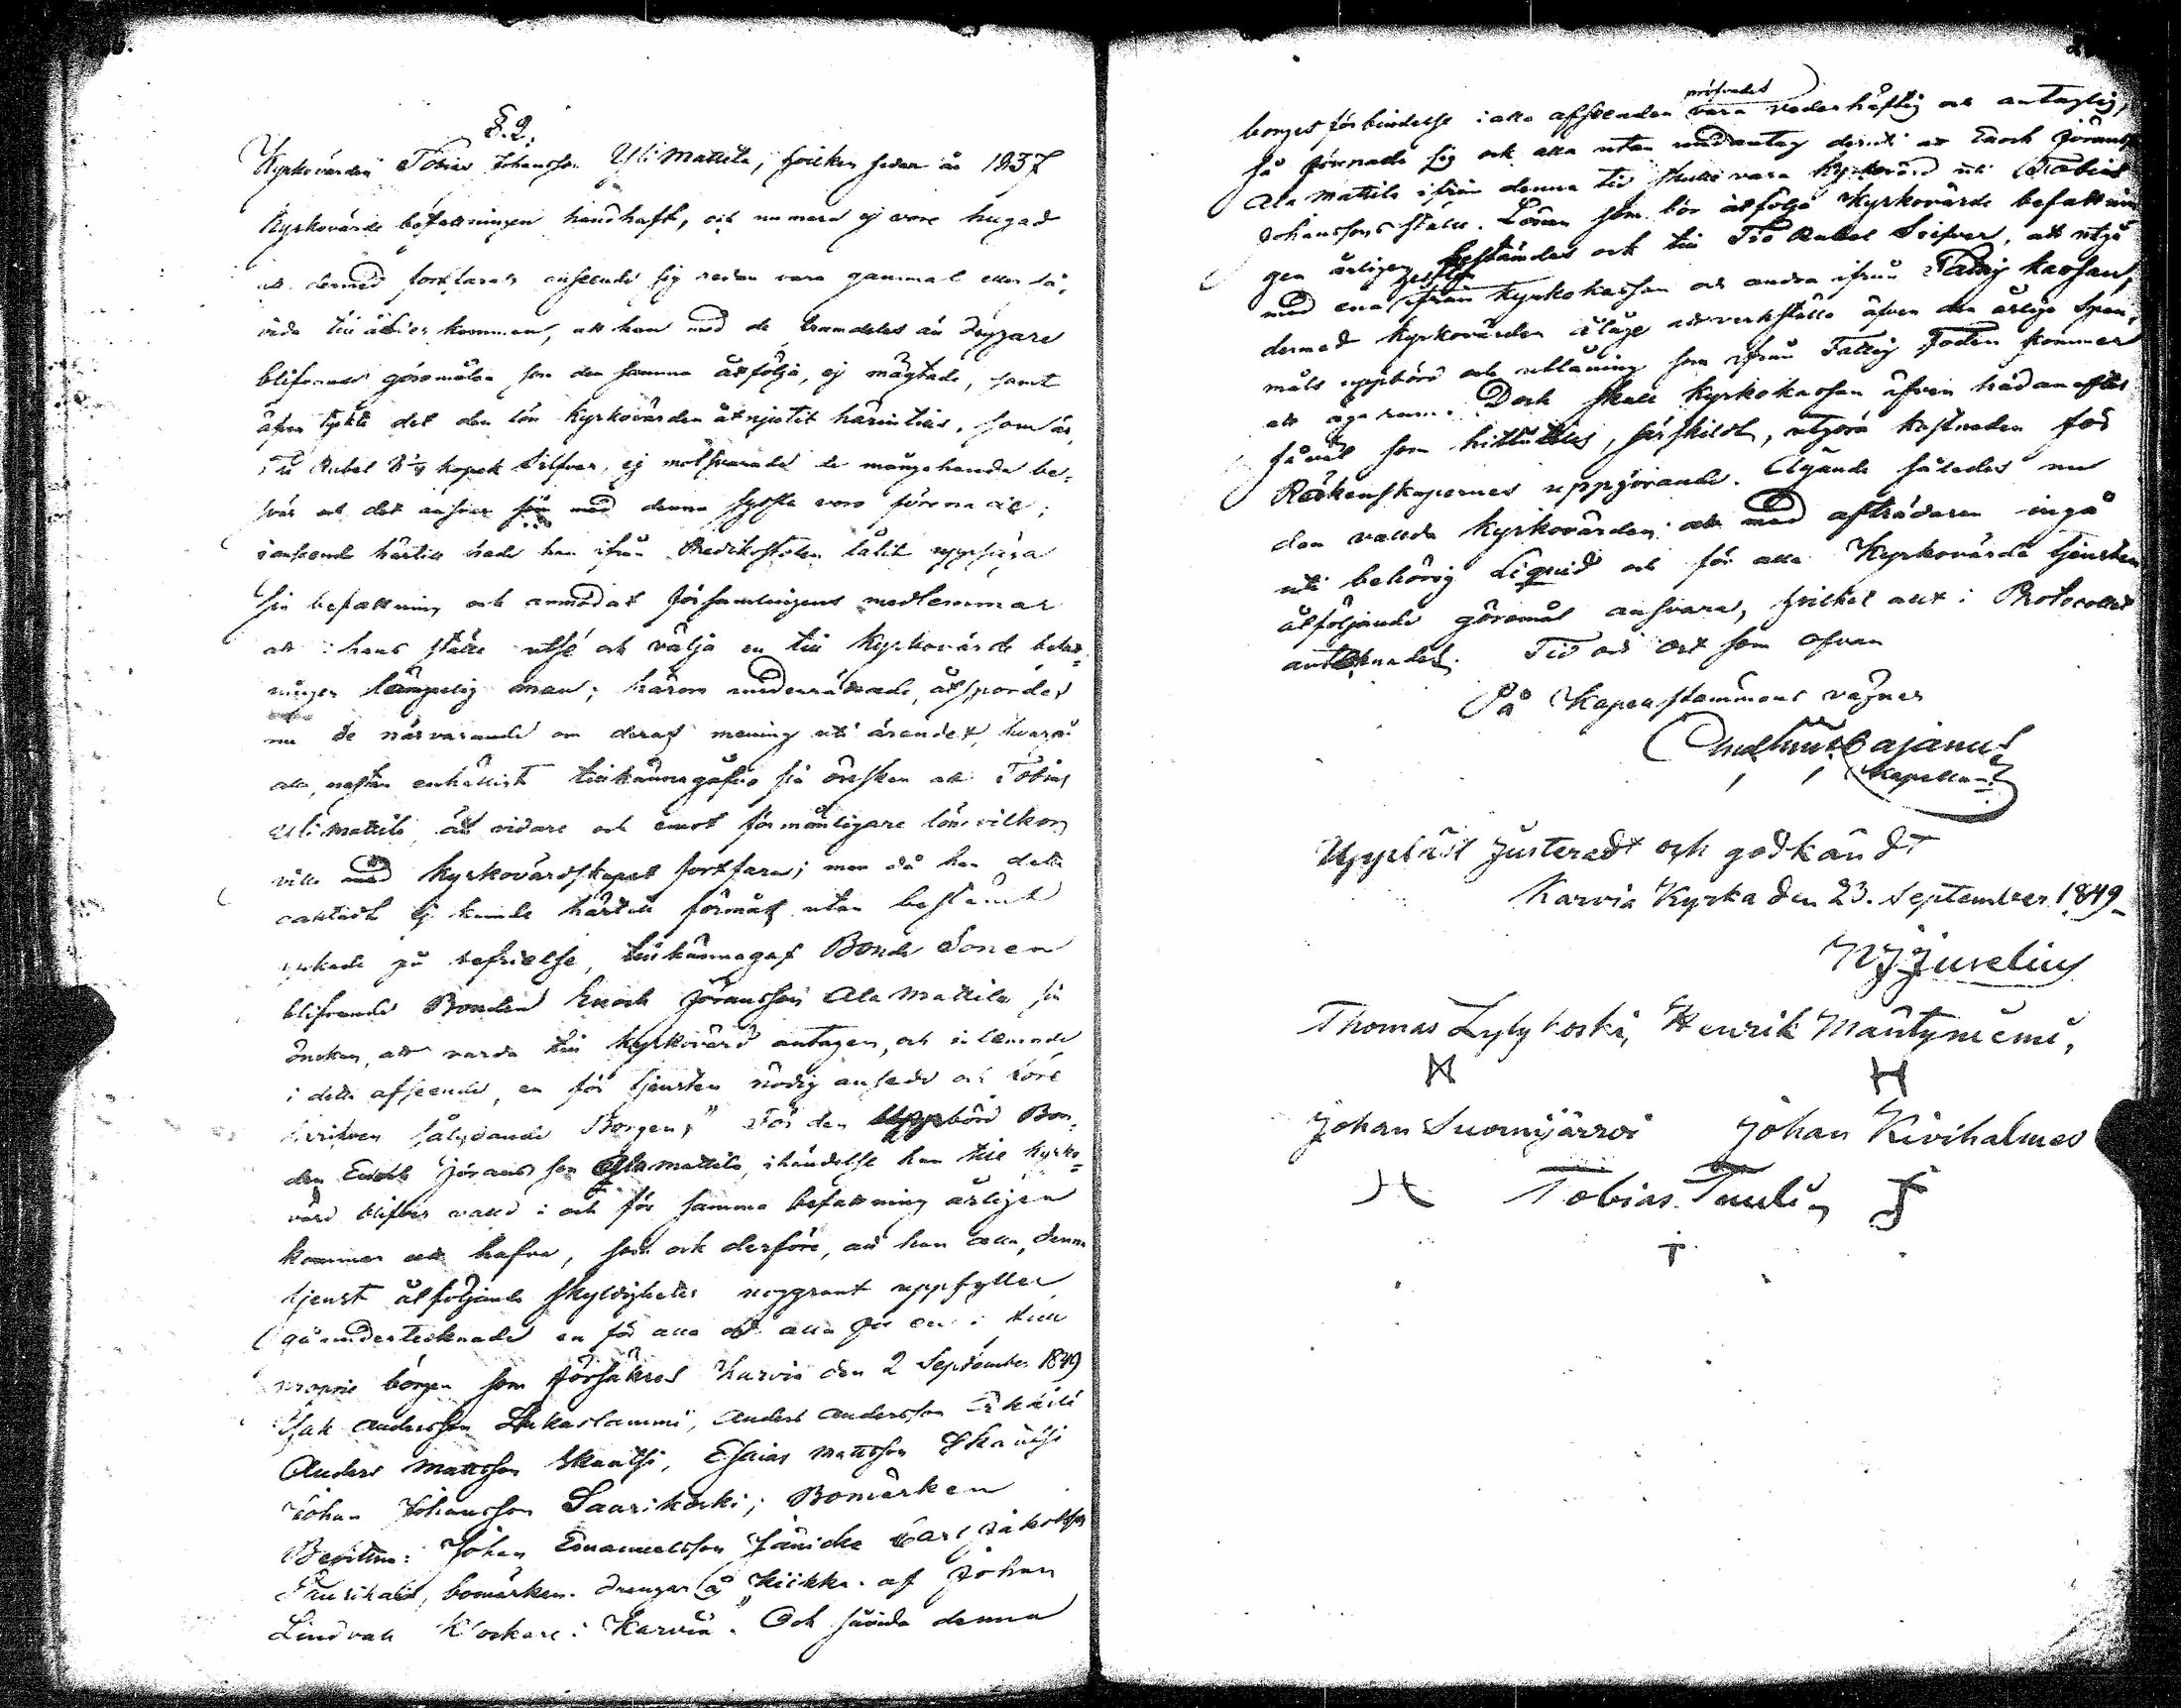 §.2.
Kyrkovärden Tobias Johansson Yli Mattila, hvilken sedan år 1837
Kyrkovärds befattningen handhaft, och numera ej vore hugad
att dermed fortfara, anseende sig redan vara gammal eller så,
vida till ålder kommen, att han med de framdeles än dryggare
blifvande göromålen som den samma åtfölja, ej mägtade, samt
äfven tykte det den lön Kyrkovärden åtnjutit härintills, som är
Rubel kopek Silfver, ej motsvarade de mångahanda be-
svär och det ansvar som med denna syssla voro förenade;
i anseende härtill hade han ifrån Predikstolen låtit uppsäga
sin befattning och anmodat församlingens medlemmar
att i hans ställe utse och välja en till Kyrkovärds befatt-
ningen lämpelig man; härom underrättade, åtspordes
nu de närvarande om deras mening uti ärendet, hvarå
alla, nästan enhälligt tillkännagåfvo sin önskan att Tobias
Yli Mattila, än vidare och emot förmånligare lönevilkor
ville med Kyrkovärdskapet fortfara; men då han detta
oaktadt ej kunde härtill förmås utan bestämdt
yrkade på befrielse, tillkännagaf Bonde Sonen
blifvande Bonden Enoch Jöransson Ala Mattila sin
önskan, att varda till Kyrkovärd antagen, och inlemnade
i detta afseende, en för tjensten nödig ansedd och
skriften sålydande Borgen; "För den uppbörd Bon-
den Enoch Jöransson Ala Mattila, ihändelse han till Kyrko-
värd blifver vald i och för samma befattning årligen
kommer att hafva, som ock derföre, att han alla, denna
tjenst åtföljande skyldigheter noggrant uppfyller
gå undertecknade en för alla och alla för en i full
proprie borgen som försäkras Karvia den 2 September 1849
Isak Andersson Lukaslammi, Anders Andersson
Anders Mattsson Skantsi, Esaias Mattsson Skantsi
Johan Johansson Saarikoski; Bomärken
Bevittna: Johan Emanuelsson Carl Jakobsson
bomärken. Drengar å Kiikka. af Johan
Lindvall Klockare i Karvia." Och såvida denna
borgesförbindelse i alla afseenden pröfvades vara vederhäftig och antaglig,
så förenade sig ock alla utan undantag deruti att Enoch Jöransson
Ala Mattila ifrån denna tid skulle vara Kyrkovärd uti Tobias
Johanssons ställe. Lönen som bör åtfölja Kyrkovärds befattnin-
gen årligen bestämdes ock till Tio Rubel Silfver, att utgå
med ena hälften ifrån Kyrkokassan och andra ifrån Fattig kassan,
dermed Kyrkovärden ålåge att verkställa äfven den årliga Span-
måls uppbörd och utlåning som ifrån Fattig Foden kommer
att äga rum. Dock skall Kyrkokassan äfven hädanefter
såväl som hittills, särskildt, utgöra kostnaden för
Räkenskapernes uppgörande. Ägande således nu
den vallda Kyrkovärden att med afträdaren ingå
uti behörig Liquid och för alla Kyrkovärds tjensten
åtföljande göromål ansvara, hvilket allt i Protocollet
antecknades. Tid och Ort som ofvan
På Kapellstämmans vägnar
Cajanus
Kapellan
Uppläst justeradt och godkändt
Karvia Kyrka den 23. September 1849.
Juselius
Thomas Lylykoski, Henrik Mäntyniemi,
Johan Suomijärvi Johan Kivihalmes
Tobias Tuuli